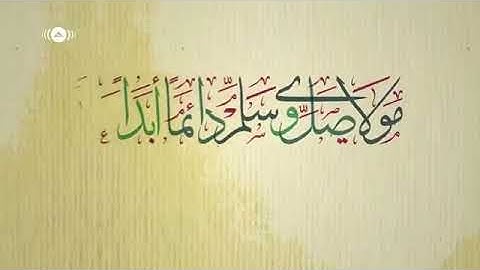 مَوْلَايَ صَلِّ وَسَلِّمْ دَائِمًا أَبَدًا